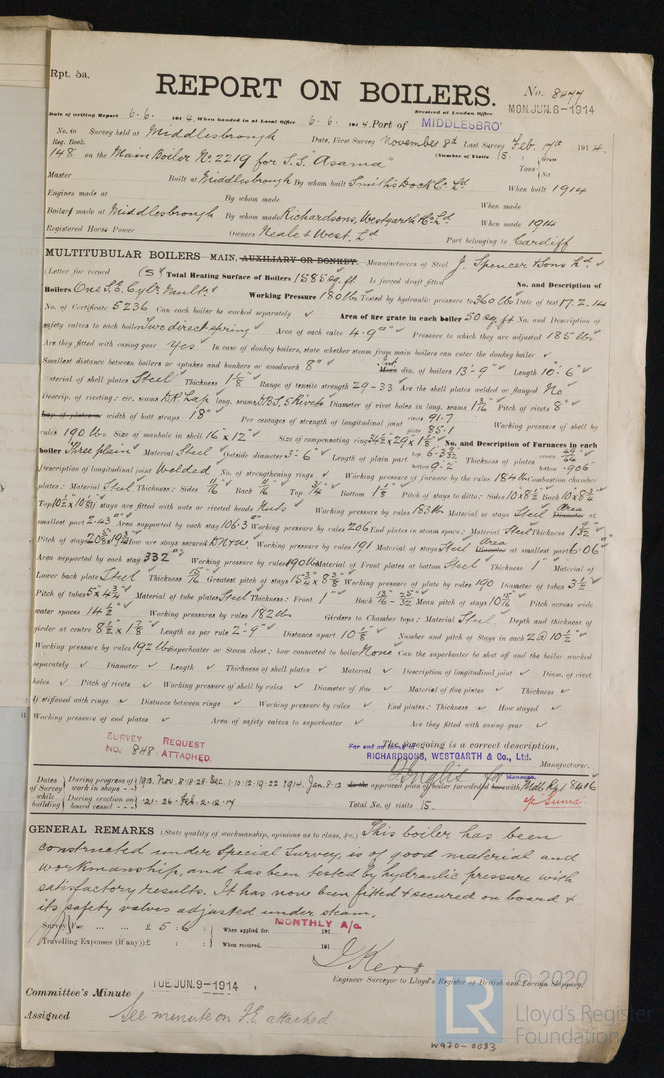 Rpt. 5a.
REPORT ON BOILERS.
No. 8477
Received at London Office
MON.JUN.8-1914
Date of writing Report 6.6. 1914. When handed in at Local Office 6.6. 1914. Port of MIDDLESBRO'
No. in Reg. Book. Survey held at Middlesbrough Date, First Survey November 8th Last Survey Feb. 17th 1914.
(Number of Visits 15.)
148 on the Main Boiler No. 2219 for S.S. "Asama" Tons Gross Net
Master Built at Middlesbrough By whom built Smith's Dock Co. Ld When built 1914
Engines made at By whom made When made
Boilers made at Middlesbrough By whom made Richardsons, Westgarth & Co. Ld. When made 1914
Registered Horse Power Owners Neale & West, Ld Port belonging to Cardiff
MULTITUBULAR BOILERS MAIN, AUXILIARY OR DONKEY. Manufacturers of Steel J. Spencer & Sons Ld.
(Letter for record (S) Total Heating Surface of Boilers 1585 sq. ft. Is forced draft fitted No. and Description of
Boilers One S.E. Cylr. Mult. Working Pressure 180 lbs Tested by hydraulic pressure to 360 lbs Date of test 17.2.14
No. of Certificate 5236 Can each boiler be worked separately Area of fire grate in each boiler 50 sq. ft. No. and Description of
safety valves to each boiler Two direct spring Area of each valve 4.9 Pressure to which they are adjusted 185 lbs
Are they fitted with easing gear Yes In case of donkey boilers, state whether steam from main boilers can enter the donkey boiler
Smallest distance between boilers or uptakes and bunkers or woodwork 8" dia. of boilers 13'-9" Length 10'-6"
Material of shell plates Steel Thickness 1 1/8 Range of tensile strength 29-33 Are the shell plates welded or flanged No
Descrip. of riveting: cir. seams D.R. Lap long. seams D.B.S. 5 Rivets Diameter of rivet holes in long. seams 1 3/16 Pitch of rivets 8"
width of butt straps 18" Per centages of strength of longitudinal joint rivets 91.7 plate 85.1 Working pressure of shell by
rules 190 lbs Size of manhole in shell 16" x 12" Size of compensating ring 34 1/2 x 29 x 1 1/8 No. and Description of Furnaces in each
boiler Three plain Material Steel Outside diameter 3'-6" Length of plain part top bottom Thickness of plates crown 49/64 bottom
Description of longitudinal joint Welded No. of strengthening rings Working pressure of furnace by the rules 184 lbs Combustion chamber
plates: Material Steel Thickness: Sides 11/16 Back 11/16 Top 3/4 Bottom 1 1/8 Pitch of stays to ditto: Sides 10 x 8 1/2 Back 10 x 8 3/4
Top 10 1/2 x If stays are fitted with nuts or riveted heads Nuts Working pressure by rules 183 lbs Material of stays Steel Area Diameter at
smallest part 2.43 Area supported by each stay 106.3 Working pressure by rules 206 End plates in steam space: Material Steel Thickness 1 9/32
Pitch of stays How are stays secured Working pressure by rules 191 Material of stays Steel Area Diameter at smallest part 6.06
Area supported by each stay 332 Working pressure by rules 190 lbs Material of Front plates at bottom Steel Thickness 1" Material of
Lower back plate Steel Thickness 15/16 Greatest pitch of stays 15 3/4 x 8 3/8 Working pressure of plate by rules 190 Diameter of tubes 3 1/2
Pitch of tubes 5 x 4 3/4 Material of tube plates Steel Thickness: Front 1" Back Mean pitch of stays Pitch across wide
water spaces 14 1/2 Working pressures by rules 182 lbs Girders to Chamber tops: Material Steel Depth and thickness of
girder at centre 8 1/2 x 1 7/8 Length as per rule 2'-9" Distance apart 10 1/2 Number and pitch of Stays in each 2 @ 10 1/2"
Working pressure by rules 192 lbs Superheater or Steam chest: how connected to boiler None Can the superheater be shut off and the boiler worked
separately Diameter Length Thickness of shell plates Material Description of longitudinal joint Diam. of rivet
holes Pitch of rivets Working pressure of shell by rules Diameter of flue Material of flue plates Thickness
If stiffened with rings Distance between rings Working pressure by rules End plates: Thickness How stayed
Working pressure of end plates Area of safety valves to superheater Are they fitted with easing gear
SURVEY REQUEST
No. 848 ATTACHED.
The foregoing is a correct description,
For and on behalf of
RICHARDSONS, WESTGARTH & Co., Ltd.
for Manager. Manufacturer.
Dates of Survey while building During progress of work in shops - - 1913. Nov. 8.18.28. Dec. 1.10.12.19.22 1914. Jan. 8.12 approved plan of boiler forwarded with Mdb Rpt 8416
During erection on board vessel - - - 21.26. Feb. 2.12.17 Total No. of visits 15.
GENERAL REMARKS (State quality of workmanship, opinions as to class, &c.) This boiler has been
constructed under Special Survey, is of good material and
workmanship, and has been tested by hydraulic pressure with
satisfactory results. It has now been fitted & secured on board &
its safety valves adjusted under steam.
Survey Fee ... ... £ 5 : 6 : When applied for, MONTHLY A/c 191
Travelling Expenses (if any) £ : : When received, 191
J. Kerr
Engineer Surveyor to Lloyd's Register of British and Foreign Shipping.
Committee's Minute TUE.JUN.9-1914
Assigned See minute on F.E. attached
© 2020
Lloyd's Register
Foundation
LR
W970-0083